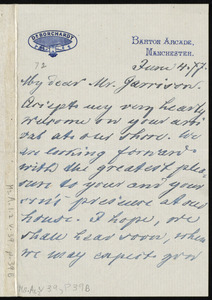 DR BORCHARDT
BARTON ARCADE,
MANCHESTER.
June 4. 77.
My dear Mr. Garrison.
Accept my very hearty
welcome on your arri
val at our shore. We
are looking forward
with the greatest plea
sure to your and your
son's presence at our
house. I hope, we
shall hear soon, when
we may expect you